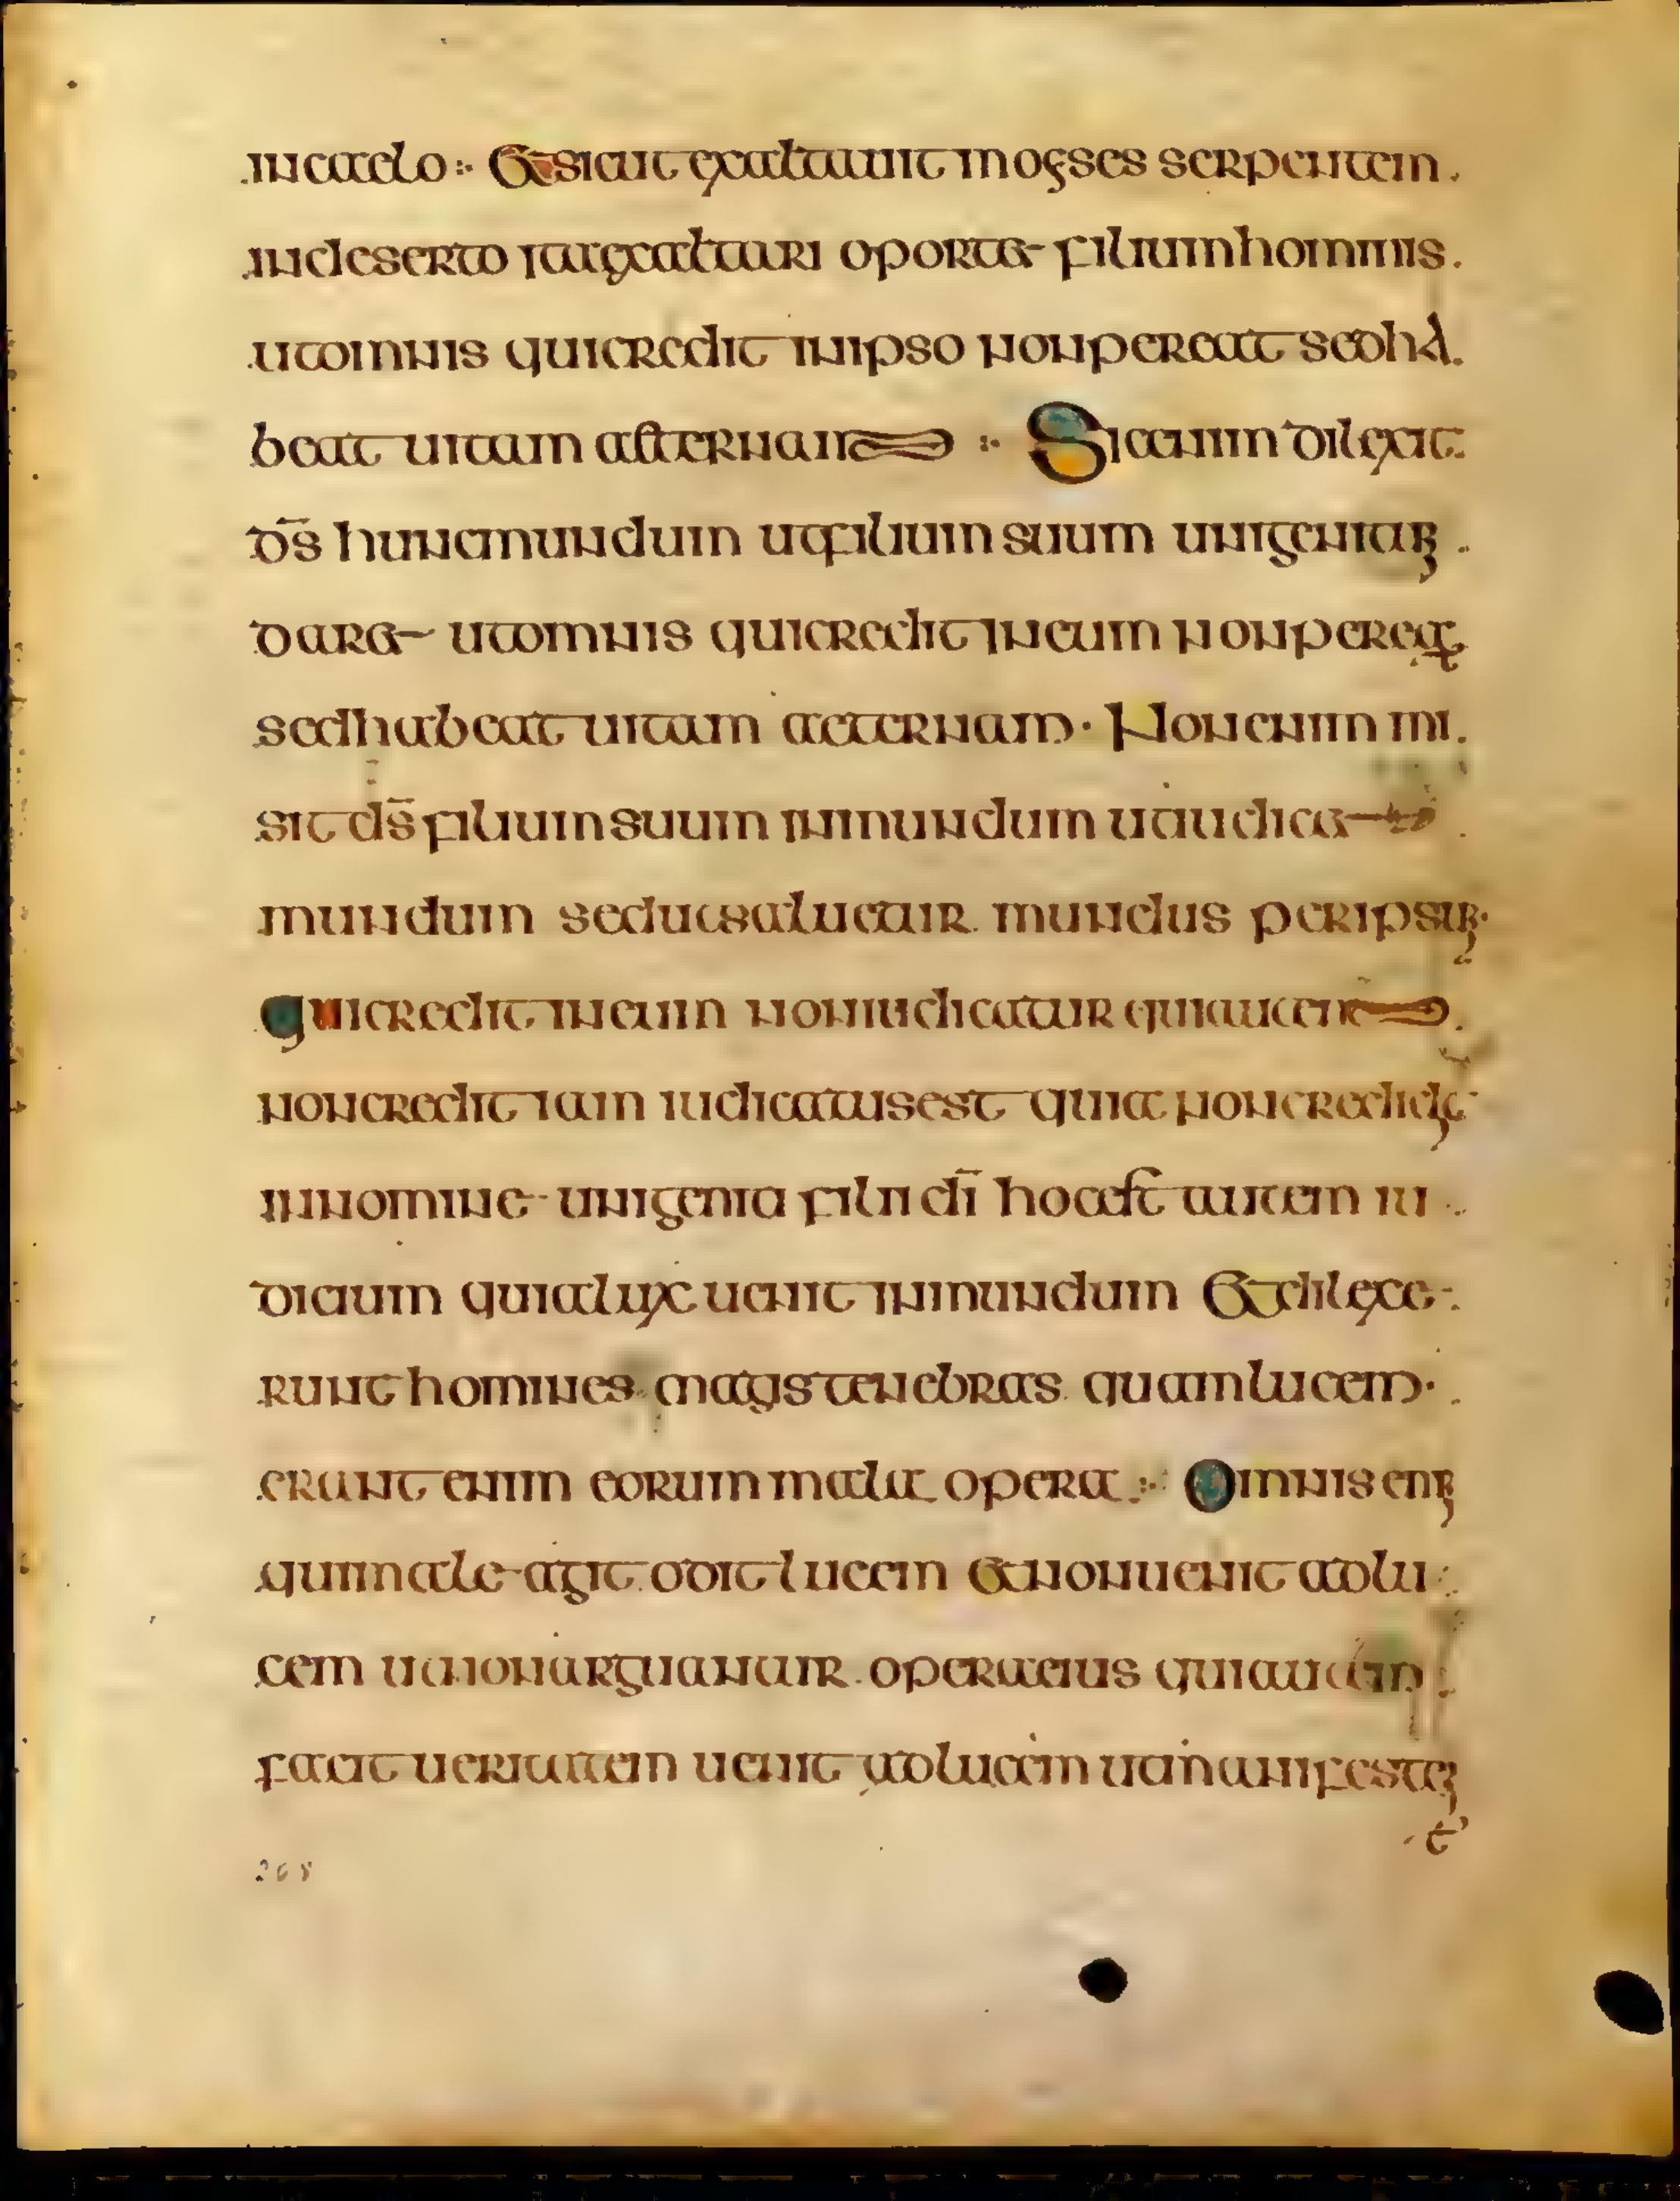 in caelo :· Et sicut exaltauit moyses serpentem
in deserto ita exaltari oportet filium hominis
ut omnis qui credit in ipso non pereat sed ha
beat uitam aeternam :· Sic enim dilexit
d̄s hunc mundum ut filium suum unigenitum
daret ut omnis qui credit in eum non pereat
sed habeat uitam aeternam · Non enim mi
sit d̄s filium suum in mundum ut iudicet
mundum sed ut saluetur mundus per ipsum ·
qui credit in eum non iudicatur qui autem
non credit iam iudicatus est quia non credidit
in nomine unigeniti filii d̄i hoc est autem iu
dicium quia lux uenit in mundum Et dilexe
runt homines magis tenebras quam lucem ·
erant enim eorum mala opera :· Omnis enim
qui male agit odit lucem et non uenit ad lu
cem ut non arguantur opera eius qui autem
facit ueritatem uenit ad lucem ut manifesten
t
268